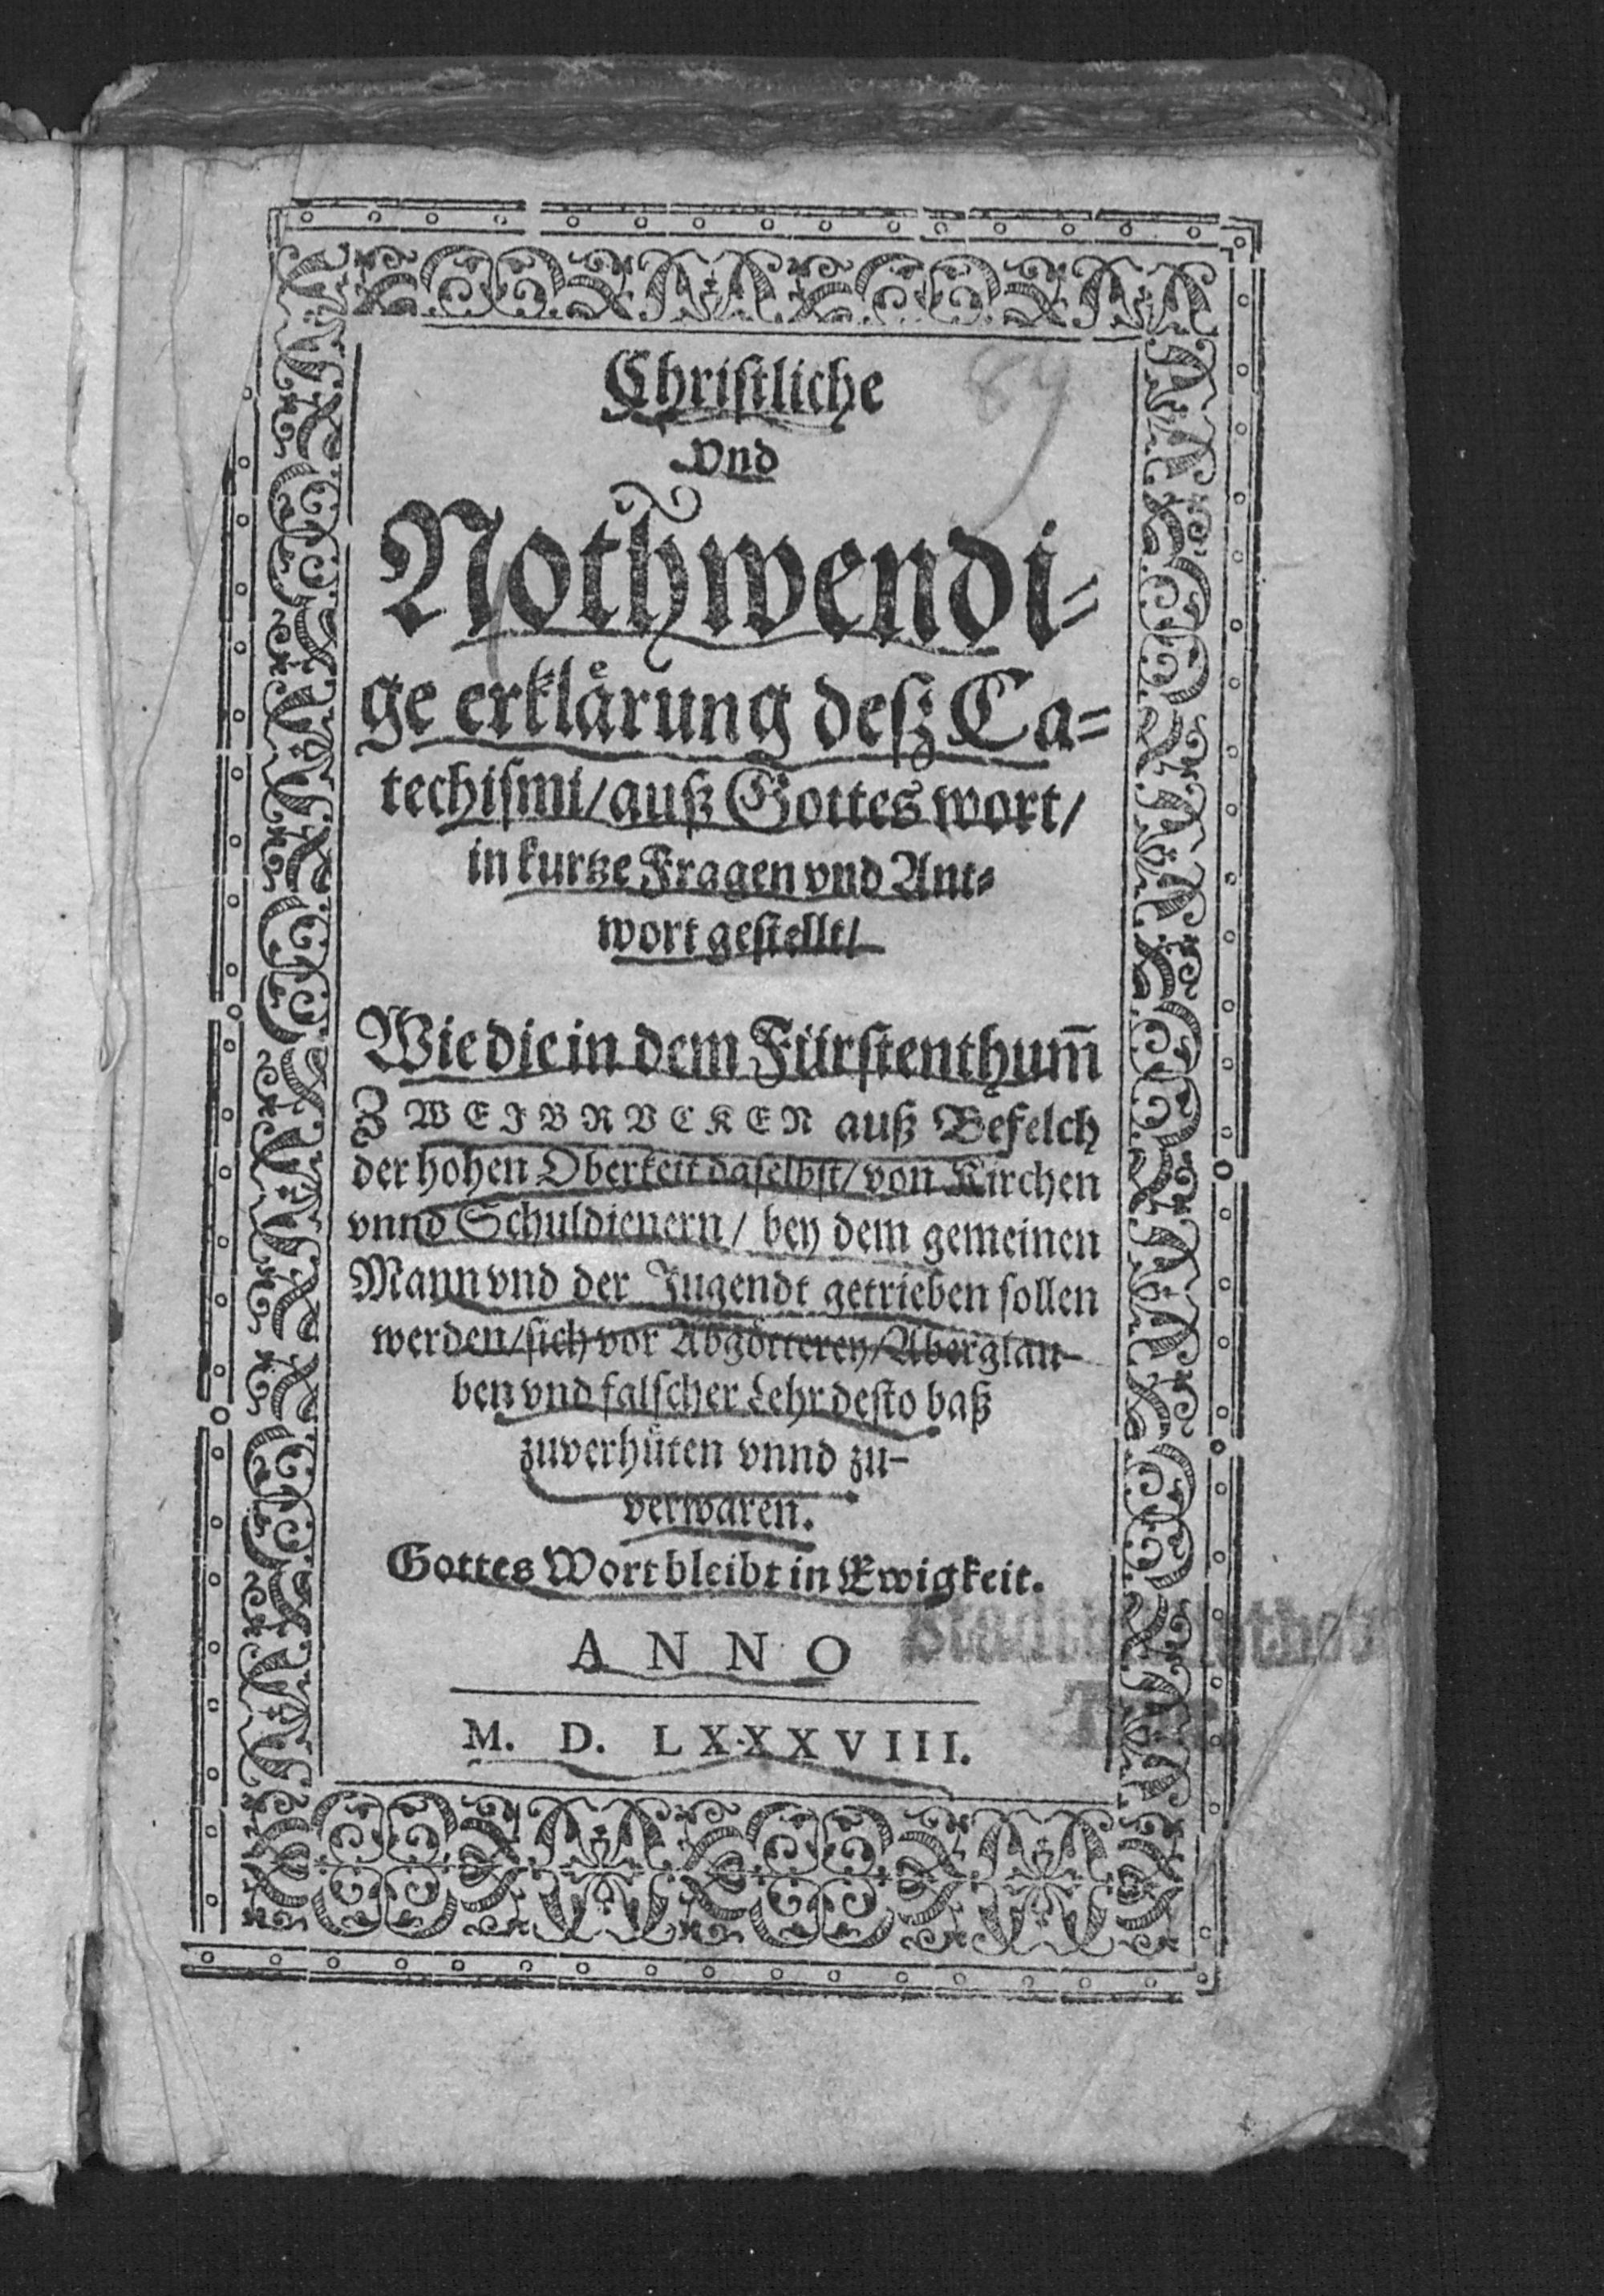 Christliche
89
Vnd
Nothwendi⸗
ge erklaͤrung deſz Ca⸗
techiſmi/ auſz Gottes wort/
in kurtze Fragen vnd Ant⸗
wort geſtellt/
Wie die in dem Fürſtenthum̄
ZWEIBRVCKEN auſz Befelch
der hohen Oberkeit daſelbſt/ von Kirchen
vnnd Schuldienern/ bey dem gemeinen
Mann vnd der Jugendt getrieben ſollen
werden/ ſich vor Abgoͤtterey/ Aberglau-
ben vnd falſcher Lehr deſto baſz
zuverhuͤten vnnd zu-
verwaren.
Gottes Wort bleibt in Ewigkeit.
ANNO
M. D. LXXXVIII.